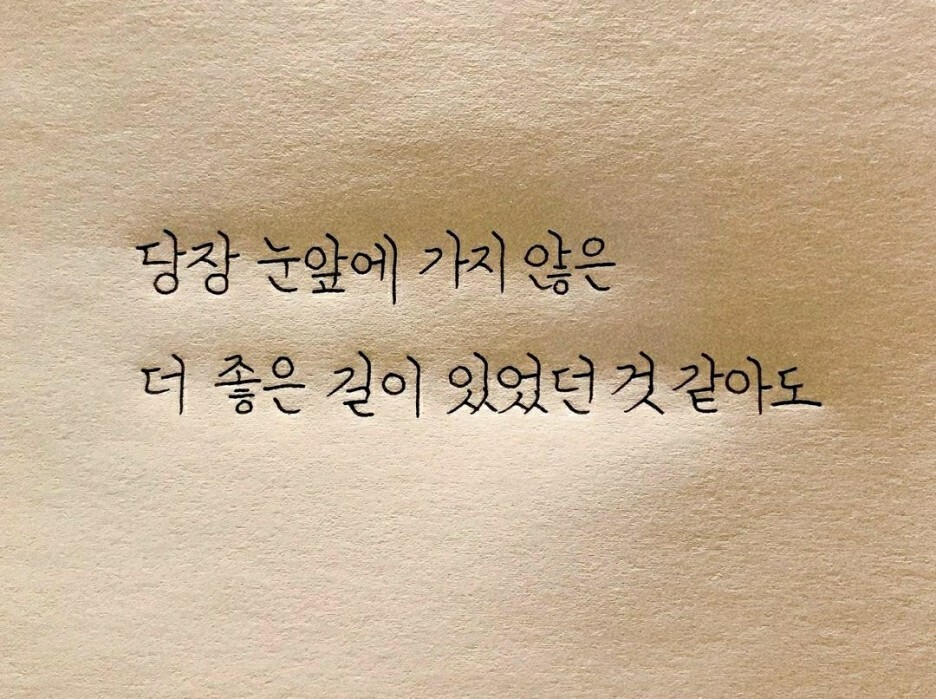 당장 눈앞에 가지 않은
더 좋은 길이 있었던 것 같아도